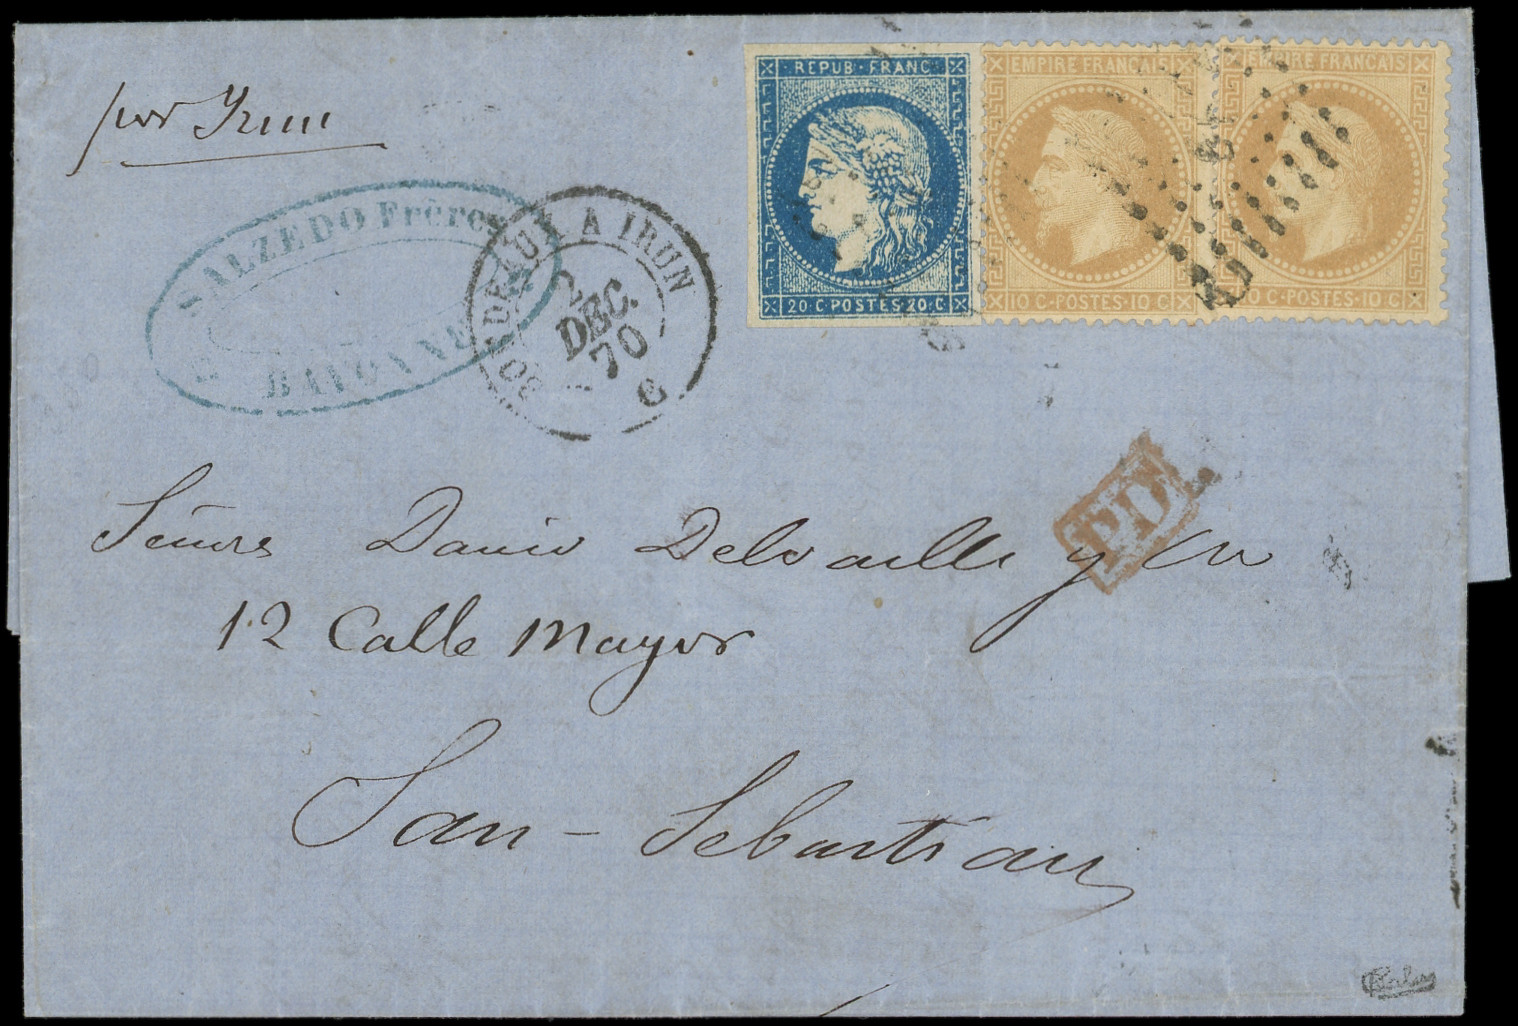 par Irun
REPUB·FRANC
20·C·POSTES·20·C·
EMPIRE FRANÇAIS
10 C·POSTES·10 C
EMPIRE FRANÇAIS
10 C·POSTES·10 C
SALZEDO Frères
BAYONNE
BORDEAUX A IRUN
2
DEC.
70
P.D.
Señores David Delvaille y Cia
12 Calle Mayor
San-Sebastian